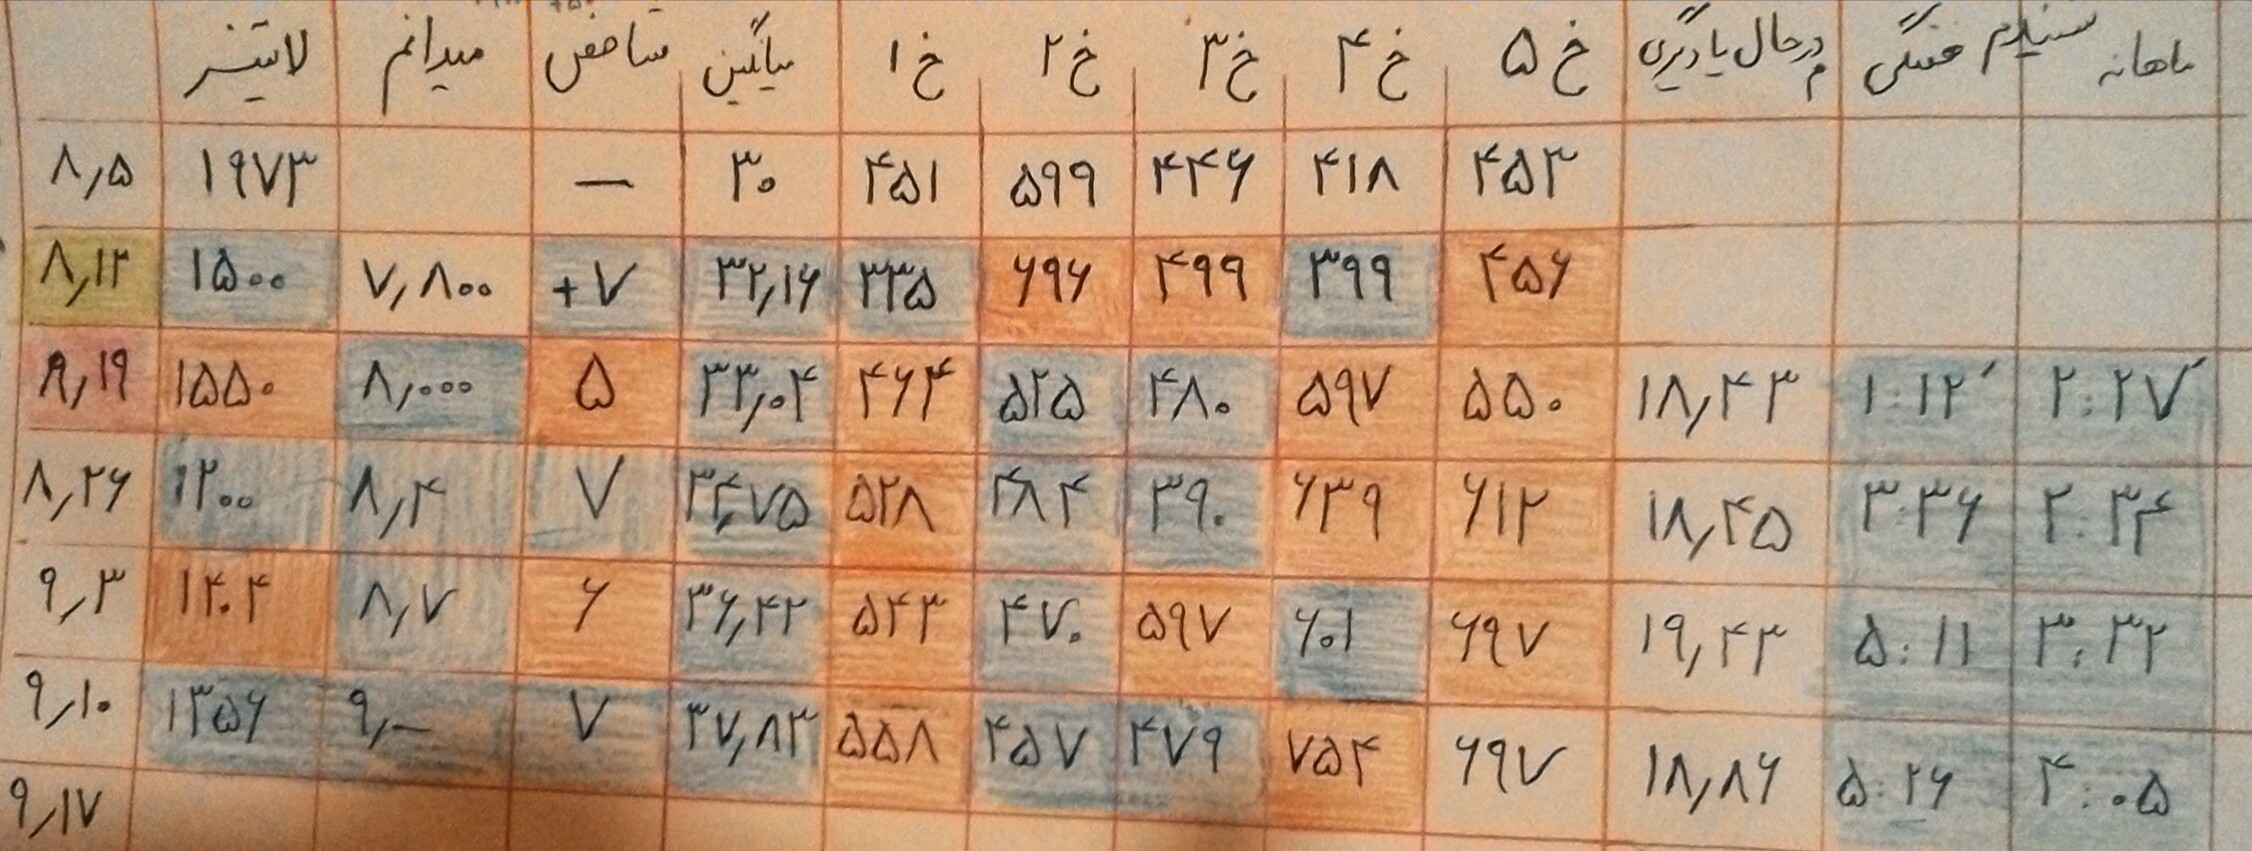 لایتنر میدانم شاخص میانگین خ ۱ خ ۲ خ ۳ خ ۴ خ ۵ درحال یادگیری هفتگی ماهانه
۸٫۵ ۱۹۷۳ — ۳۰ ۴۵۱ ۵۹۹ ۴۴۶ ۴۱۸ ۴۵۳
۸٫۱۲ ۱۵۰۰ ۷٫۸۰۰ +۷ ۳۲٫۱۶ ۳۳۵ ۶۹۶ ۴۹۹ ۳۹۹ ۴۵۶
۸٫۱۹ ۱۵۵۰ ۸٫۰۰۰ ۵ ۳۳٫۰۴ ۴۶۴ ۵۲۵ ۴۸۰ ۵۹۷ ۵۵۰ ۱۸٫۴۳ ۱:۱۲′ ۲:۲۷′
۸٫۲۶ ۱۲۰۰ ۸٫۴ ۷ ۳۴٫۷۵ ۵۲۸ ۴۸۴ ۳۹۰ ۶۳۹ ۶۱۲ ۱۸٫۴۵ ۳:۳۶ ۲:۳۴
۹٫۳ ۱۴۰۴ ۸٫۷ ۶ ۳۶٫۴۲ ۵۴۳ ۴۷۰ ۵۹۷ ۶۰۱ ۶۹۷ ۱۹٫۴۳ ۵:۱۱ ۳:۳۲
۹٫۱۰ ۱۳۵۶ ۹٫— ۷ ۳۷٫۸۳ ۵۵۸ ۴۵۷ ۴۷۹ ۷۵۴ ۶۹۷ ۱۸٫۸۶ ۵:۲۶ ۴:۰۵
۹٫۱۷